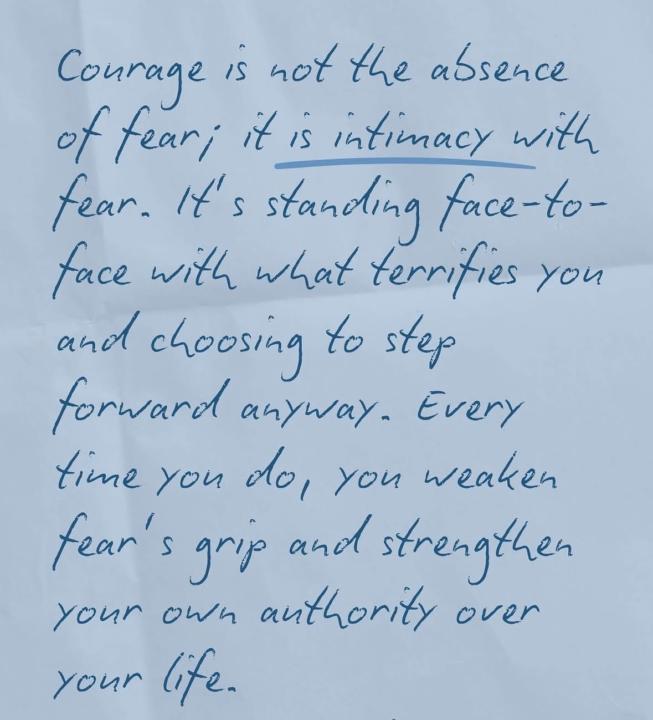 Courage is not the absence
of fear; it is intimacy with
fear. It's standing face-to-
face with what terrifies you
and choosing to step
forward anyway. Every
time you do, you weaken
fear's grip and strengthen
your own authority over
your life.